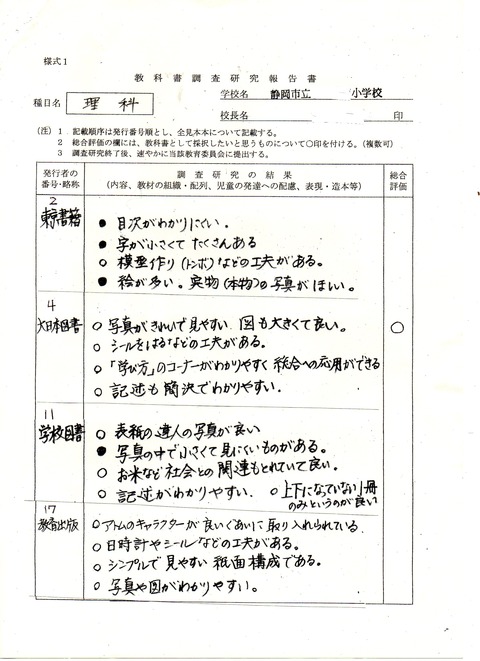 様式1
教科書調査研究報告書
学校名 静岡市立 小学校
種目名 理科
校長名 印
(注) 1 記載順序は発行番号順とし、全見本本について記載する。
2 総合評価の欄には、教科書として採択したいと思うものについて○印を付ける。(複数可)
3 調査研究終了後、速やかに当該教育委員会に提出する。
発行者の番号・略称
調査研究の結果
(内容、教材の組織・配列、児童の発達への配慮、表現・造本等)
総合評価
2
東京書籍
● 目次がわかりにくい。
● 字が小さくてたくさんある
○ 模型作り(トンボ)などの工夫がある。
● 絵が多い。実物(本物)の写真がほしい。
4
大日本図書
○ 写真がきれいで見やすい 図も大きくて良い。
○
○ シールをはるなどの工夫がある。
○ 「学び方」のコーナーがわかりやすく 総合への応用ができる
○ 記述も簡決でわかりやすい.
11
学校図書
○ 表紙の達人の写真が良い
● 写真の中で小さくて見にくいものがある。
○ お米など社会との関連もとれていて良い。
○ 記述がわかりやすい. ○ 上下になっていない1冊
のみというのが良い
17
教育出版
○ アトムのキャラクターが良いぐあいに取り入れられている.
○ 日時計やシールなどの工夫がある。
○ シンプルで見やすい紙面構成である。
○ 写真や図がわかりやすい。